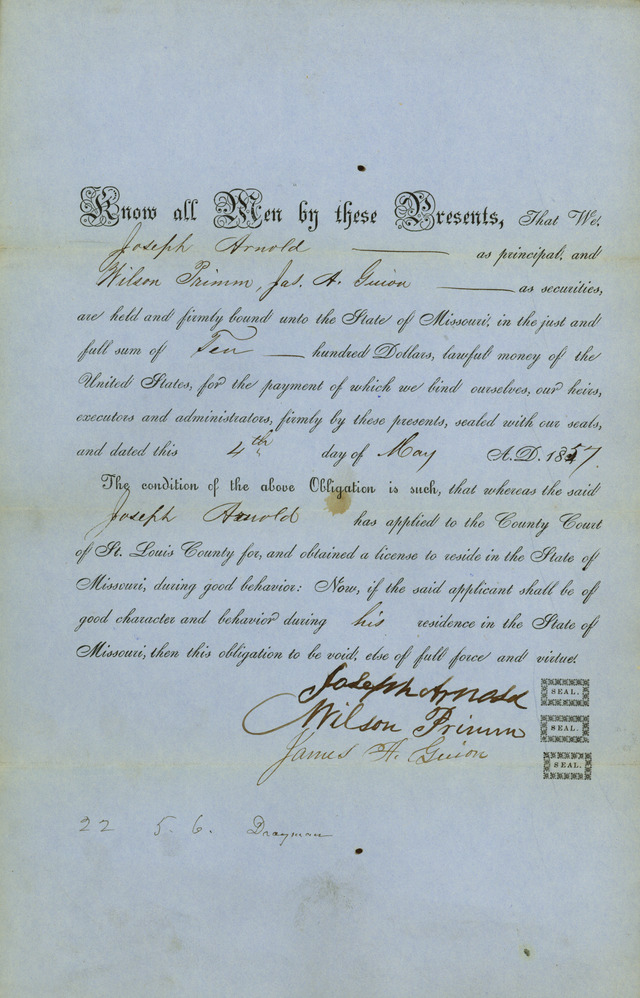 Know all Men by these Presents, That We,
Joseph Arnold as principal, and
Wilson Primm, Jas. A. Guion as securities,
are held and firmly bound unto the State of Missouri, in the just and
full sum of Ten hundred Dollars, lawful money of the
United States, for the payment of which we bind ourselves, our heirs,
executors and administrators, firmly by these presents, sealed with our seals,
and dated this 4th day of May A.D. 1857.
The condition of the above Obligation is such, that whereas the said
Joseph Arnold has applied to the County Court
of St. Louis County for, and obtained a license to reside in the State of
Missouri, during good behavior: Now, if the said applicant shall be of
good character and behavior during his residence in the State of
Missouri, then this obligation to be void, else of full force and virtue.
Joseph Arnold SEAL.
Wilson Primm SEAL.
James A. Guion SEAL.
22 5. 6. Drayman